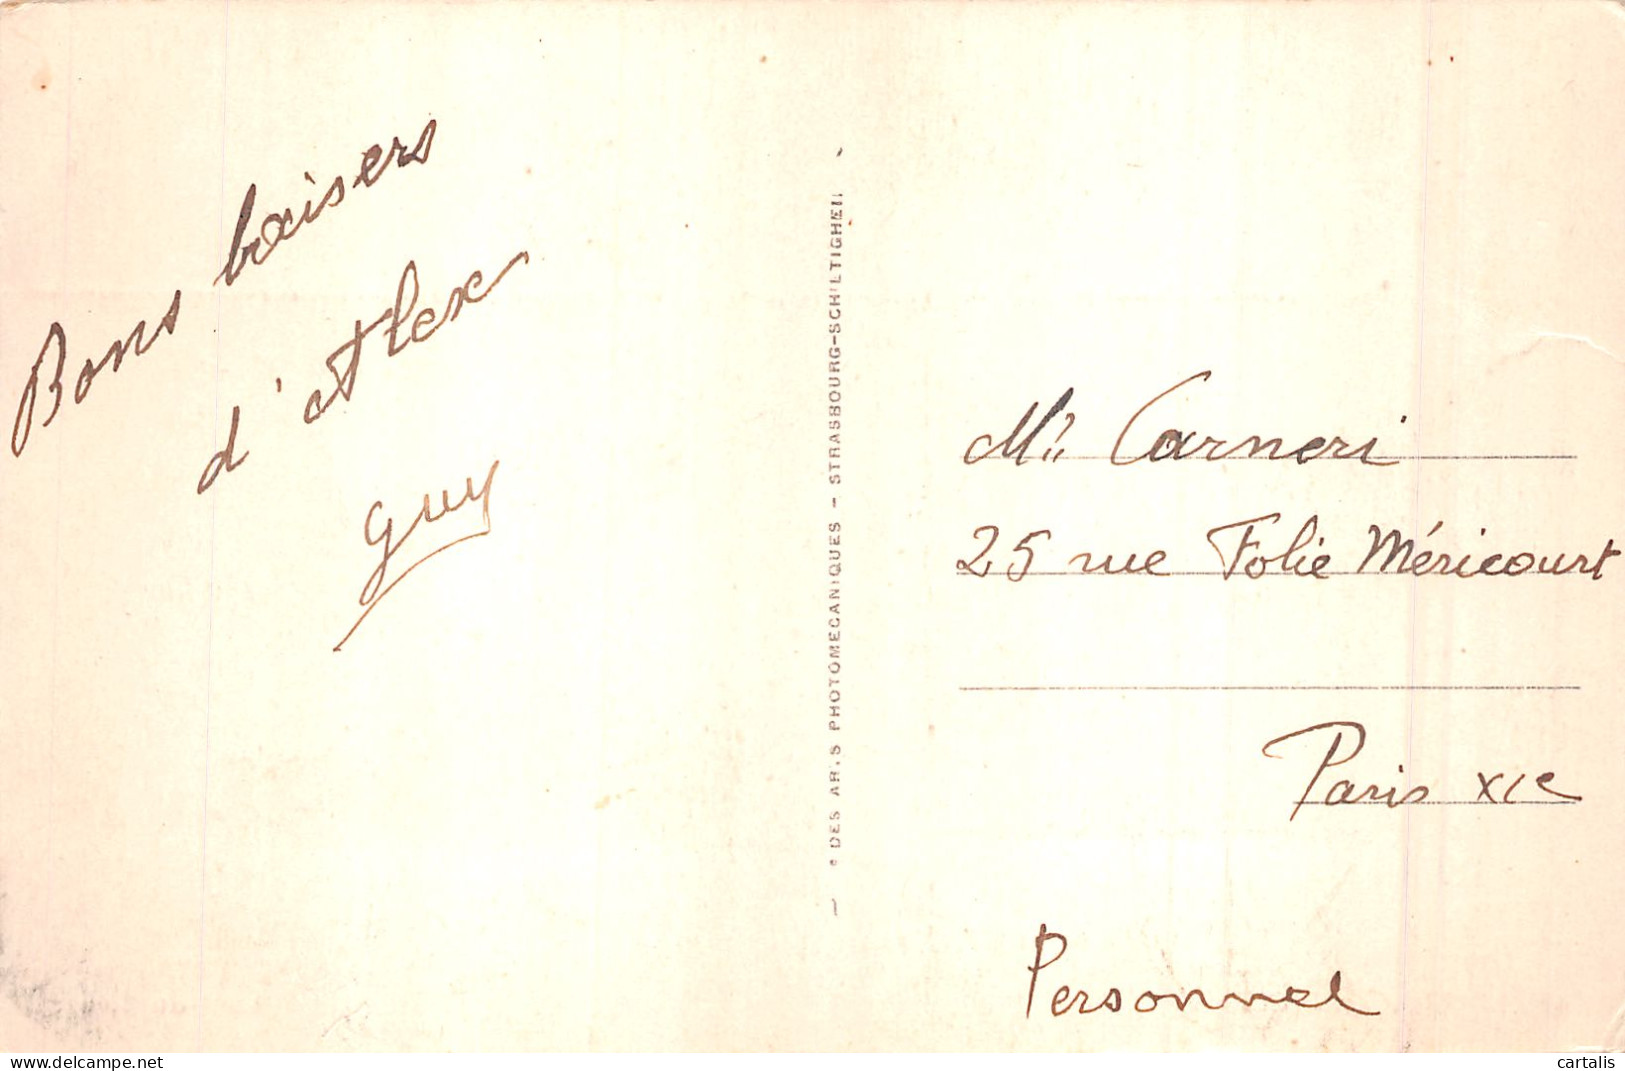 Bons baisers
d'Alex
Guy
Cⁱᵉ DES ARTS PHOTOMECANIQUES - STRASBOURG-SCHILTIGHEIM
Mˡˡ Carneri
25 rue Folie Méricourt
Paris XIe
Personnel
cartalis